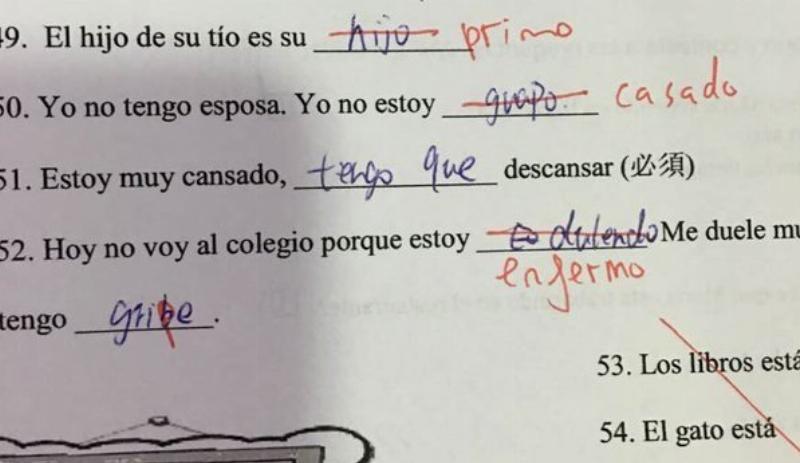 49. El hijo de su tío es su hijo primo
50. Yo no tengo esposa. Yo no estoy guapo. casado
51. Estoy muy cansado, tengo que descansar (必須)
52. Hoy no voy al colegio porque estoy Me duele mu
enfermo
tengo gripe.
53. Los libros está
54. El gato está